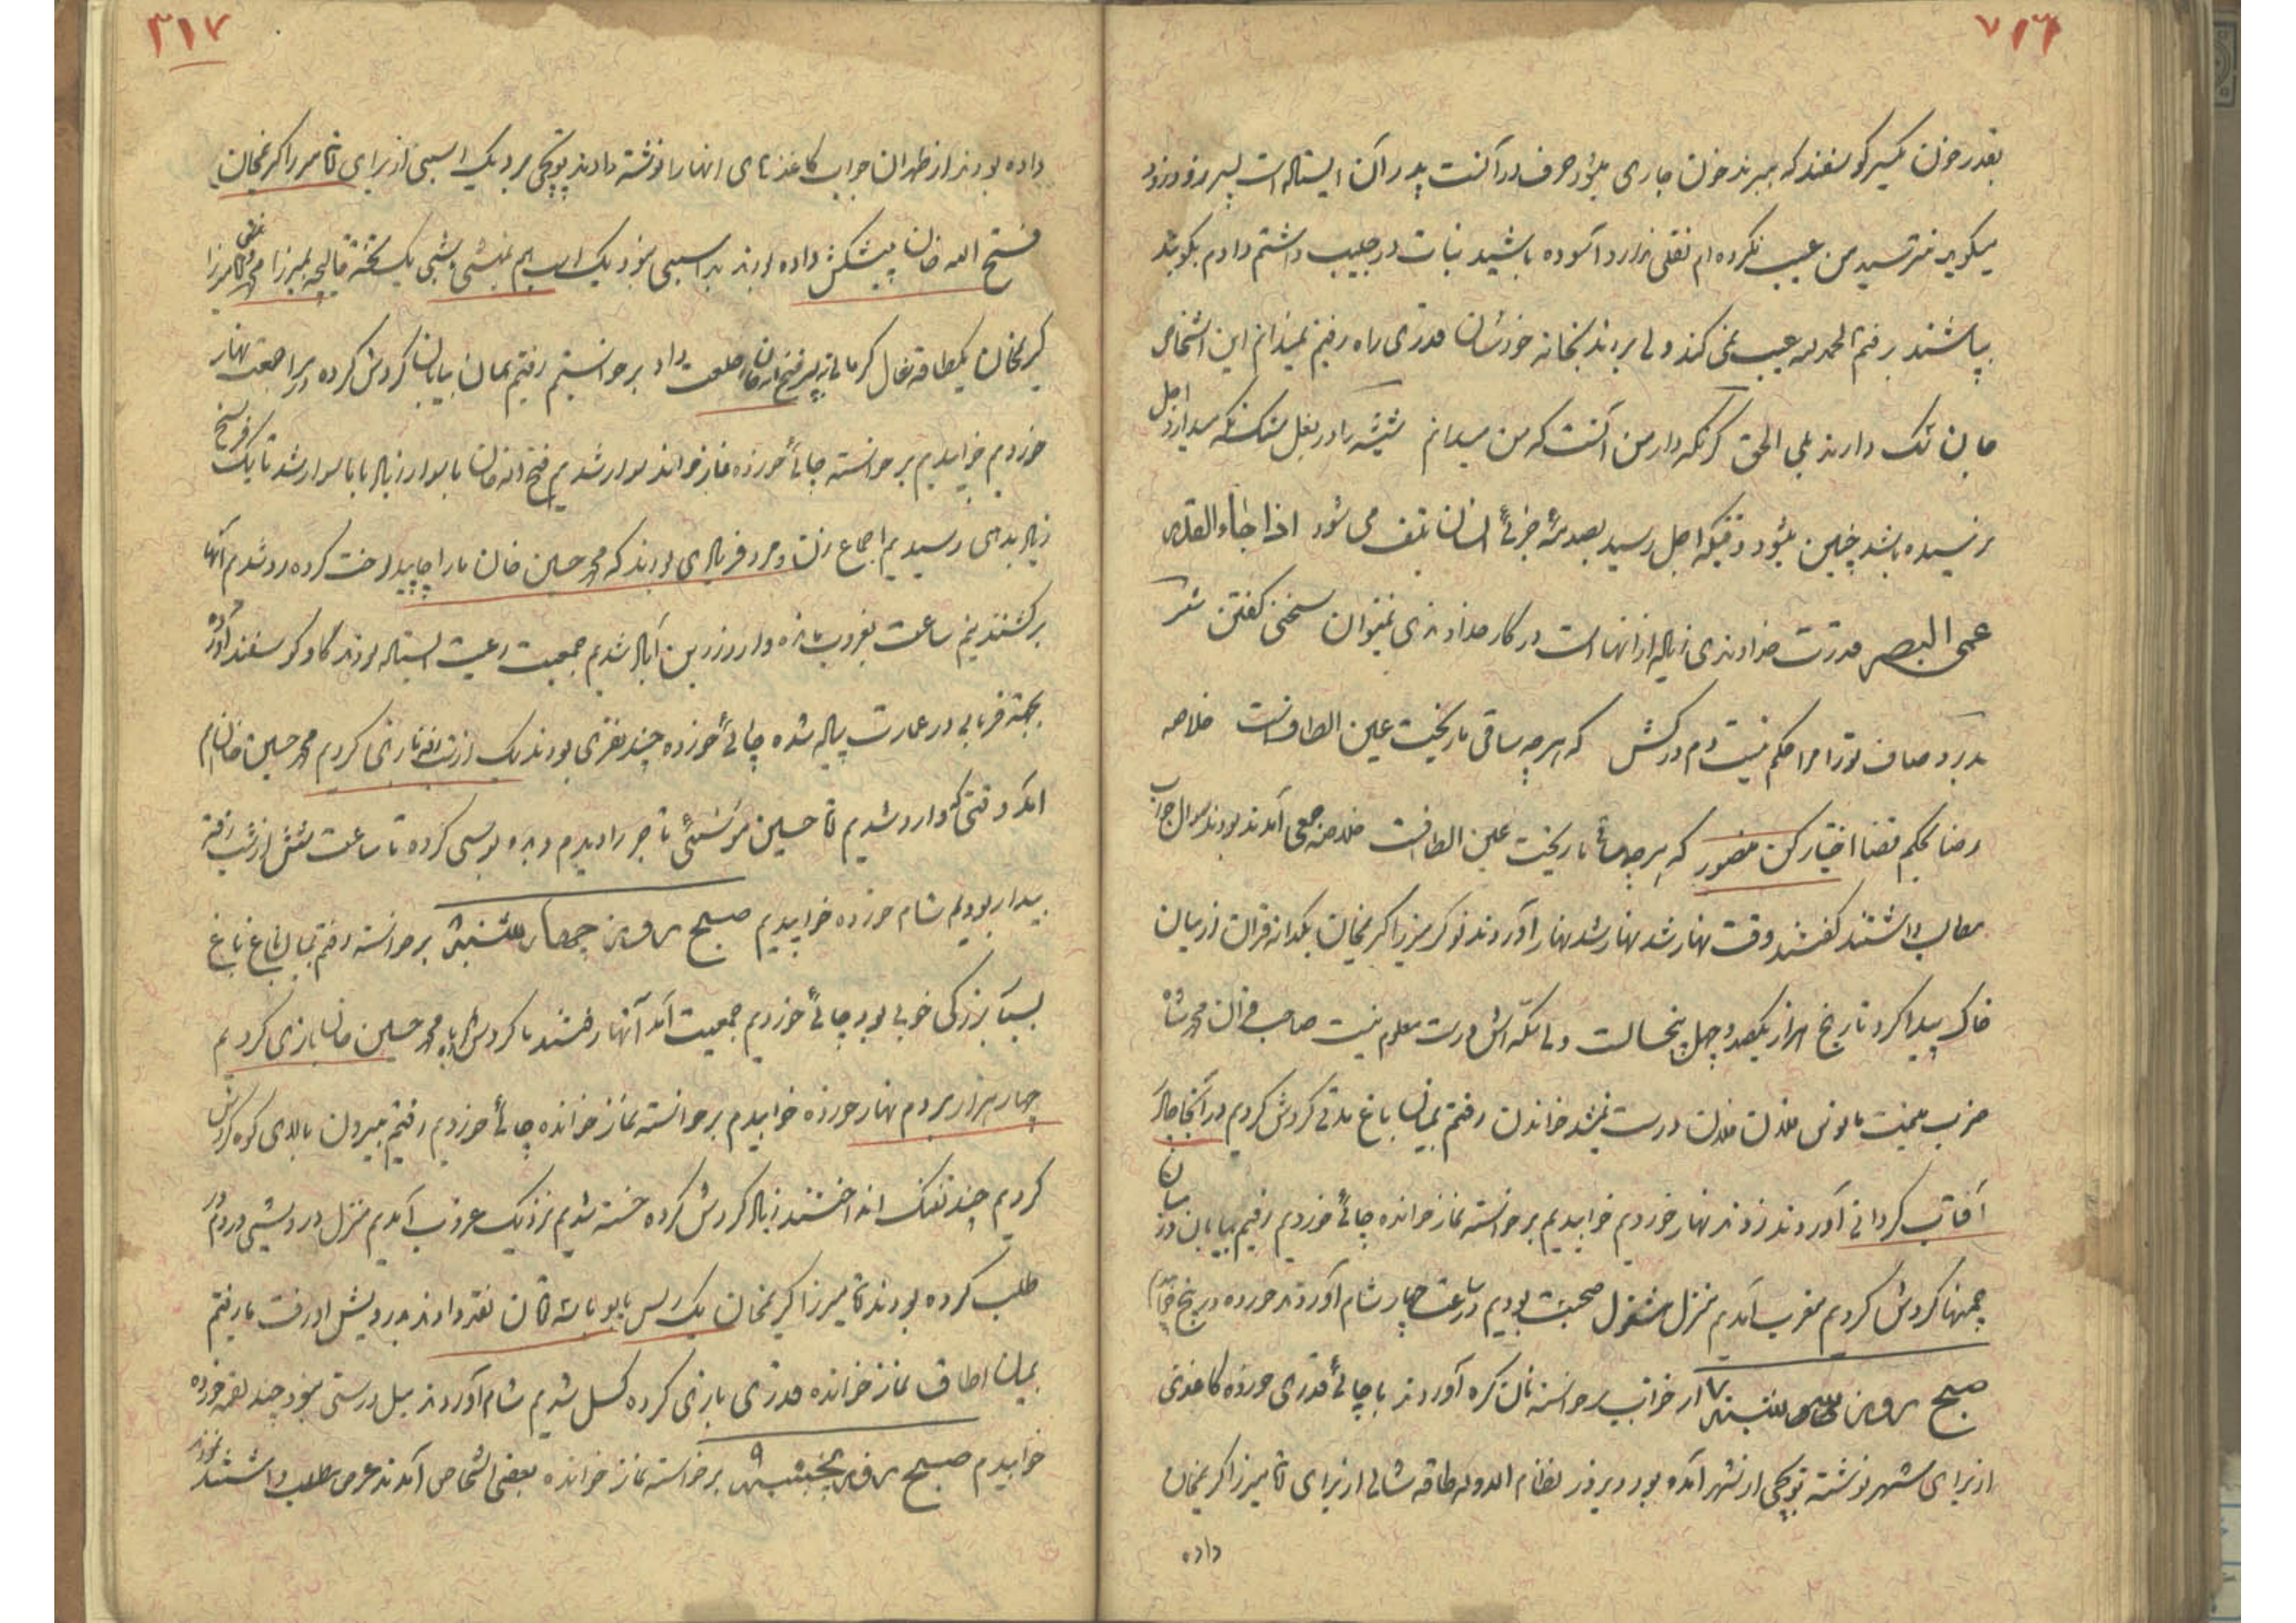 ۷۱۶
بقدر خون یکسر گوسفند که ببرند خون جاری میشود حرف در آنست پدر آن ایستاده است پسر
میگوید نترسید من عیب نکرده‌ام نقلی ندارد آسوده باشید نبات در جیب داشتم دادم بکوبند
بپاشند رفتم الحمدلله عیب نمی‌کند ولی بردند بخانه خودشان قدری راه رفتیم نمیدانم این اشخاص
جان تک دارند بلی الحق گر نگه‌دار من آنست که من میدانم شیشه را در بغل سنگ نگه میدارد اجل
نرسیده باشد چنین میشود وقتیکه اجل رسید بصدمه جزئی انسان تلف می‌شود اذا جاء القدر
عمی البصر قدرت خداوندی زیاده از اینهاست در کار خداوندی نمیتوان سخنی گفتن شعر
بدرد و صاف تو را حکم نیست دم درکش که هرچه ساقی ما ریخت عین الطافست خلاصه
رضا بحکم قضا اختیار کن منصور که هرچه ساقی ما ریخت عین الطافست خلاصه جمعی آمدند بودند سوال جواب
مطالب داشتند گفتند وقت نهار شد نهار شد نهار آوردند نوکر میرزا کریمخان یکدانه قران از میان
خاک پیدا کرد تاریخ هزار یکصد و چهل پنجسالست ولی سکه‌اش درست معلوم نیست صاحب قران محمد شاه
ضرب میمنت مانوس فلان فلان درست نمیشد خواندن رفتم بمیان باغ مدتی گردش کردیم در آنجا چادر
آفتاب گردانی آوردند زدند نهار خوردیم خوابیدیم برخواسته نماز خوانده چائی خوردیم رفتیم بیابان در میان
چمنها گردش کردیم مغرب آمدیم منزل مشغول صحبت بودیم در ساعت چهار شام آوردند خورده در پنج
صبح روز سه شنبه ۷ از خواب برخواسته نان کره آوردند با چائی قدری خورده کاغذی
از برای شهر نوشته توپچی از شهر آمده بود دیروز نظام الدوله طاقه شالی از برای آقا میرزا کریمخان
داده
۳۱۷
داده بودند از طهران جواب کاغذهای آنها را نوشته دادند توپچی برد یک اسبی از برای آقا میرزا کریمخان
فتح الله خان پیشکش داده بودند بد اسبی نبود یک اسب هم بمنشی باشی یک تخته قالیچه بمیرزا محمد علی آقا میرزا
کریمخان یکطاقه شال کرمانی به پسر فتح الله خان خلعت داد برخواستیم رفتیم بمیان بیابان گردش کرده مراجعت نهار
خوردیم خوابیدیم برخواسته چائی خورده نماز خوانده سوار شدیم فتح الله خان با سوار زیاد با ما سوار شد تا یک فرسخ
زیاد بدهی رسیدیم اجماع زن و مرد فریادی بودند که محمد حسین خان ما را چاپید لخت کرده رو شدیم آنها
برگشتند نیم ساعت بغروب مانده وارد زرین آباد شدیم جمعیت رعیت ایستاده بودند گاو گوسفند آورده
بجهة قربانی در عمارت پیاده شده چائی خورده چند نفری بودند یک از شب رفته بازی کردیم محمد حسین خان هم
آمد وقتی که وارد شدیم آقا حسین تاجر را دیدم دیده بوسی کرده تا ساعت شش از شب رفته
بیدار بودیم شام خورده خوابیدیم صبح روز چهارشنبه برخواسته رفتم بمیان باغ باغ
بسیار بزرگی خوبی بود چائی خوردیم جمعیت آمد آنها رفتند با محمد حسین خان بازی کردیم
چهار هزار بردم نهار خورده خوابیدم برخواسته نماز خوانده چائی خوردیم رفتیم بیرون بالای کوه گردش
کردیم چند تفنگ انداختند زیاد گردش کرده خسته شدیم نزدیک غروب آمدیم منزل درویشی در دم در
طلب کرده بودند آقا میرزا کریمخان یک رأس یابو با سه تومان نقد دادند بدرویش او رفت ما رفتیم
بمیان اطاق نماز خوانده قدری بازی کرده کسل شدیم شام آوردند میل درستی نبود چند لقمه خورده
خوابیدم صبح روز پنجشنبه ۹ برخواسته نماز خوانده بعضی اشخاص آمدند عرض مطلب داشتند